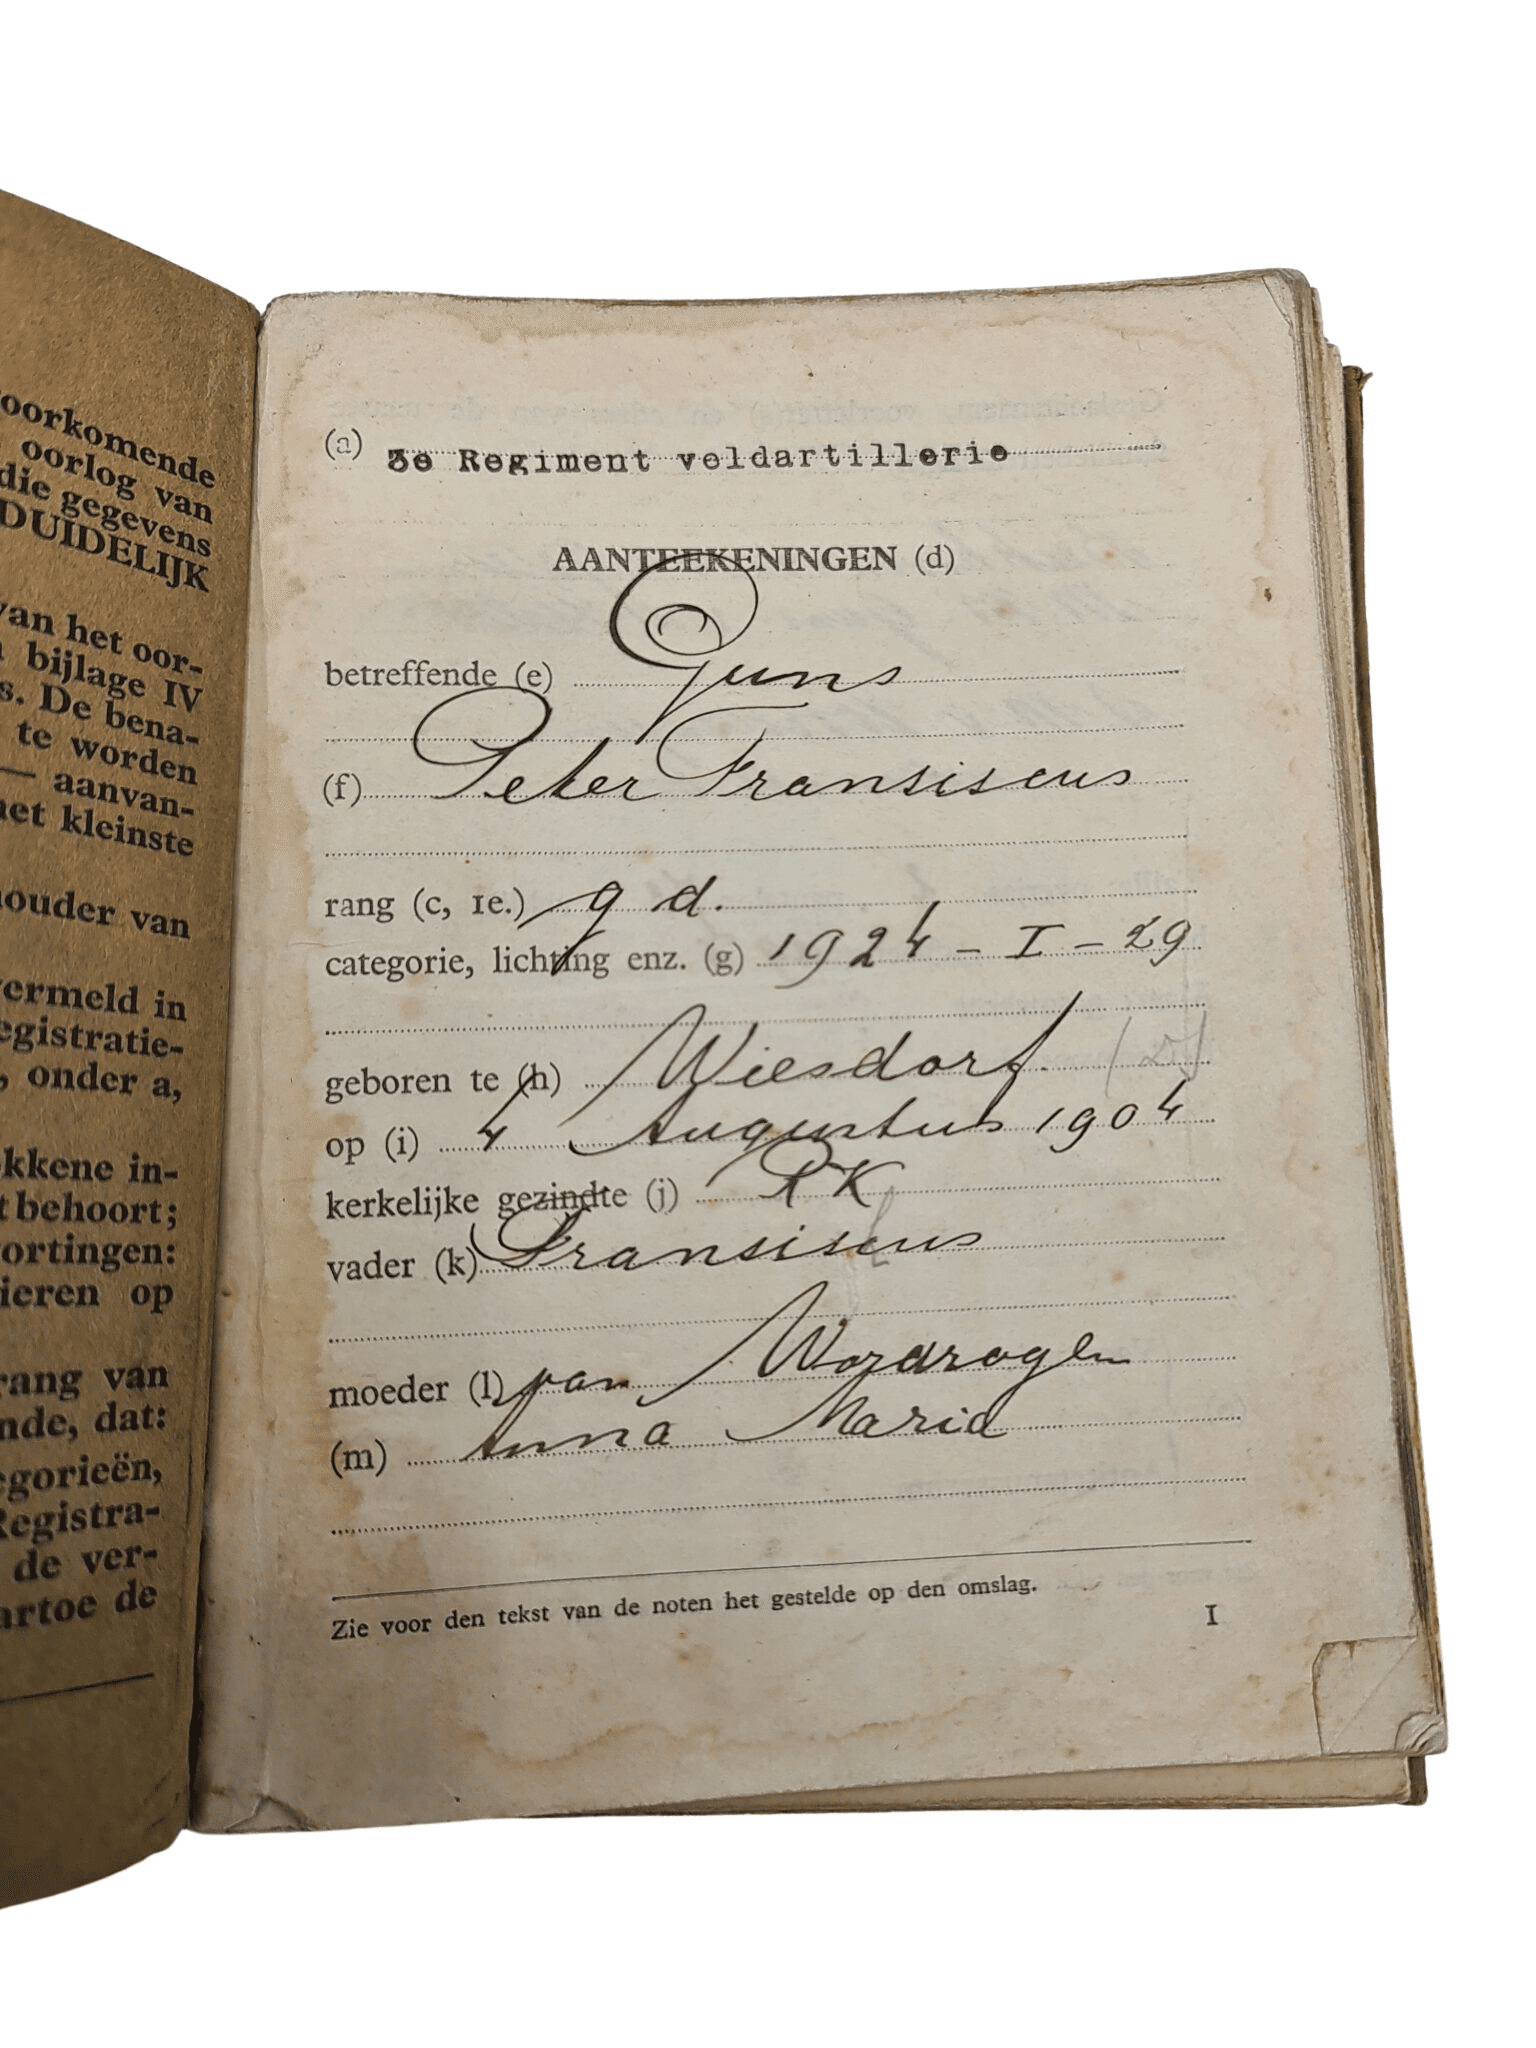 oorkomende
oorlog van
die gegevens
DUIDELIJK
van het oor-
bijlage IV
s. De bena-
te worden
— aanvan-
het kleinste
houder van
vermeld in
egistratie-
, onder a,
okkene in-
t behoort;
ortingen:
ieren op
rang van
ende, dat:
egorieën,
Registra-
de ver-
artoe de
(a) 3e Regiment veldartillerie
AANTEEKENINGEN (d)
betreffende (e) Guns
(f) Peter Fransiscus
rang (c, 1e.) g d.
categorie, lichting enz. (g) 1924 - I - 29
geboren te (h) Wiesdorf. (D)
op (i) 4 Augustus 1904
kerkelijke gezindte (j) RK
vader (k) Fransiscus
moeder (l) van Wordragen
(m) Anna Maria
Zie voor den tekst van de noten het gestelde op den omslag.
I